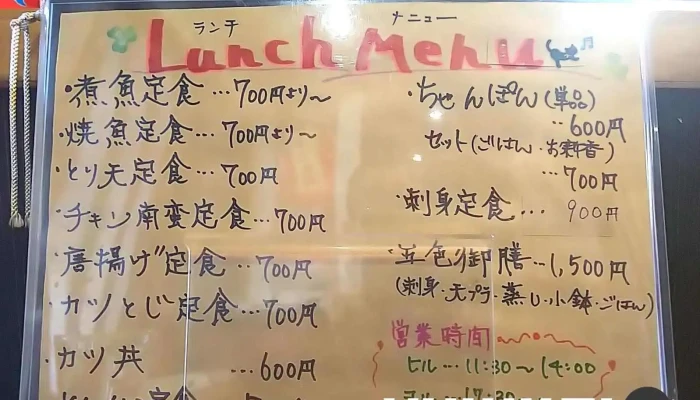 ランチ メニュー
Lunch Menu
・煮魚定食…700円より~
・焼魚定食…700円より~
・とり天定食…700円
・チキン南蛮定食…700円
・唐揚げ定食…700円
・カツとじ定食…700円
・カツ丼 …600円
・ちゃんぽん(単品)
…600円
セット(ごはん・お新香)
…700円
・刺身定食…900円
・五色御膳…1,500円
(刺身・天プラ・蒸し・小鉢・ごはん)
営業時間
ヒル…11:30~14:00